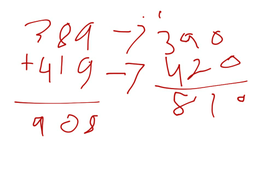 389 -> 390
+419 -> 420
908 810